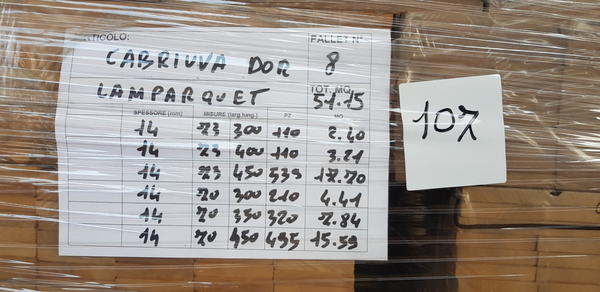 ARTICOLO: PALLET N°
CABRIUVA DOR 8
LAMPARQUET TOT. MQ 51.15
SPESSORE (mm) MISURE (larg./lung.) PZ MQ
14 73 300 110 2.40
14 73 400 110 3.21
14 73 450 539 17.70
14 70 300 210 4.41
14 70 350 320 7.84
14 70 450 495 15.59
107